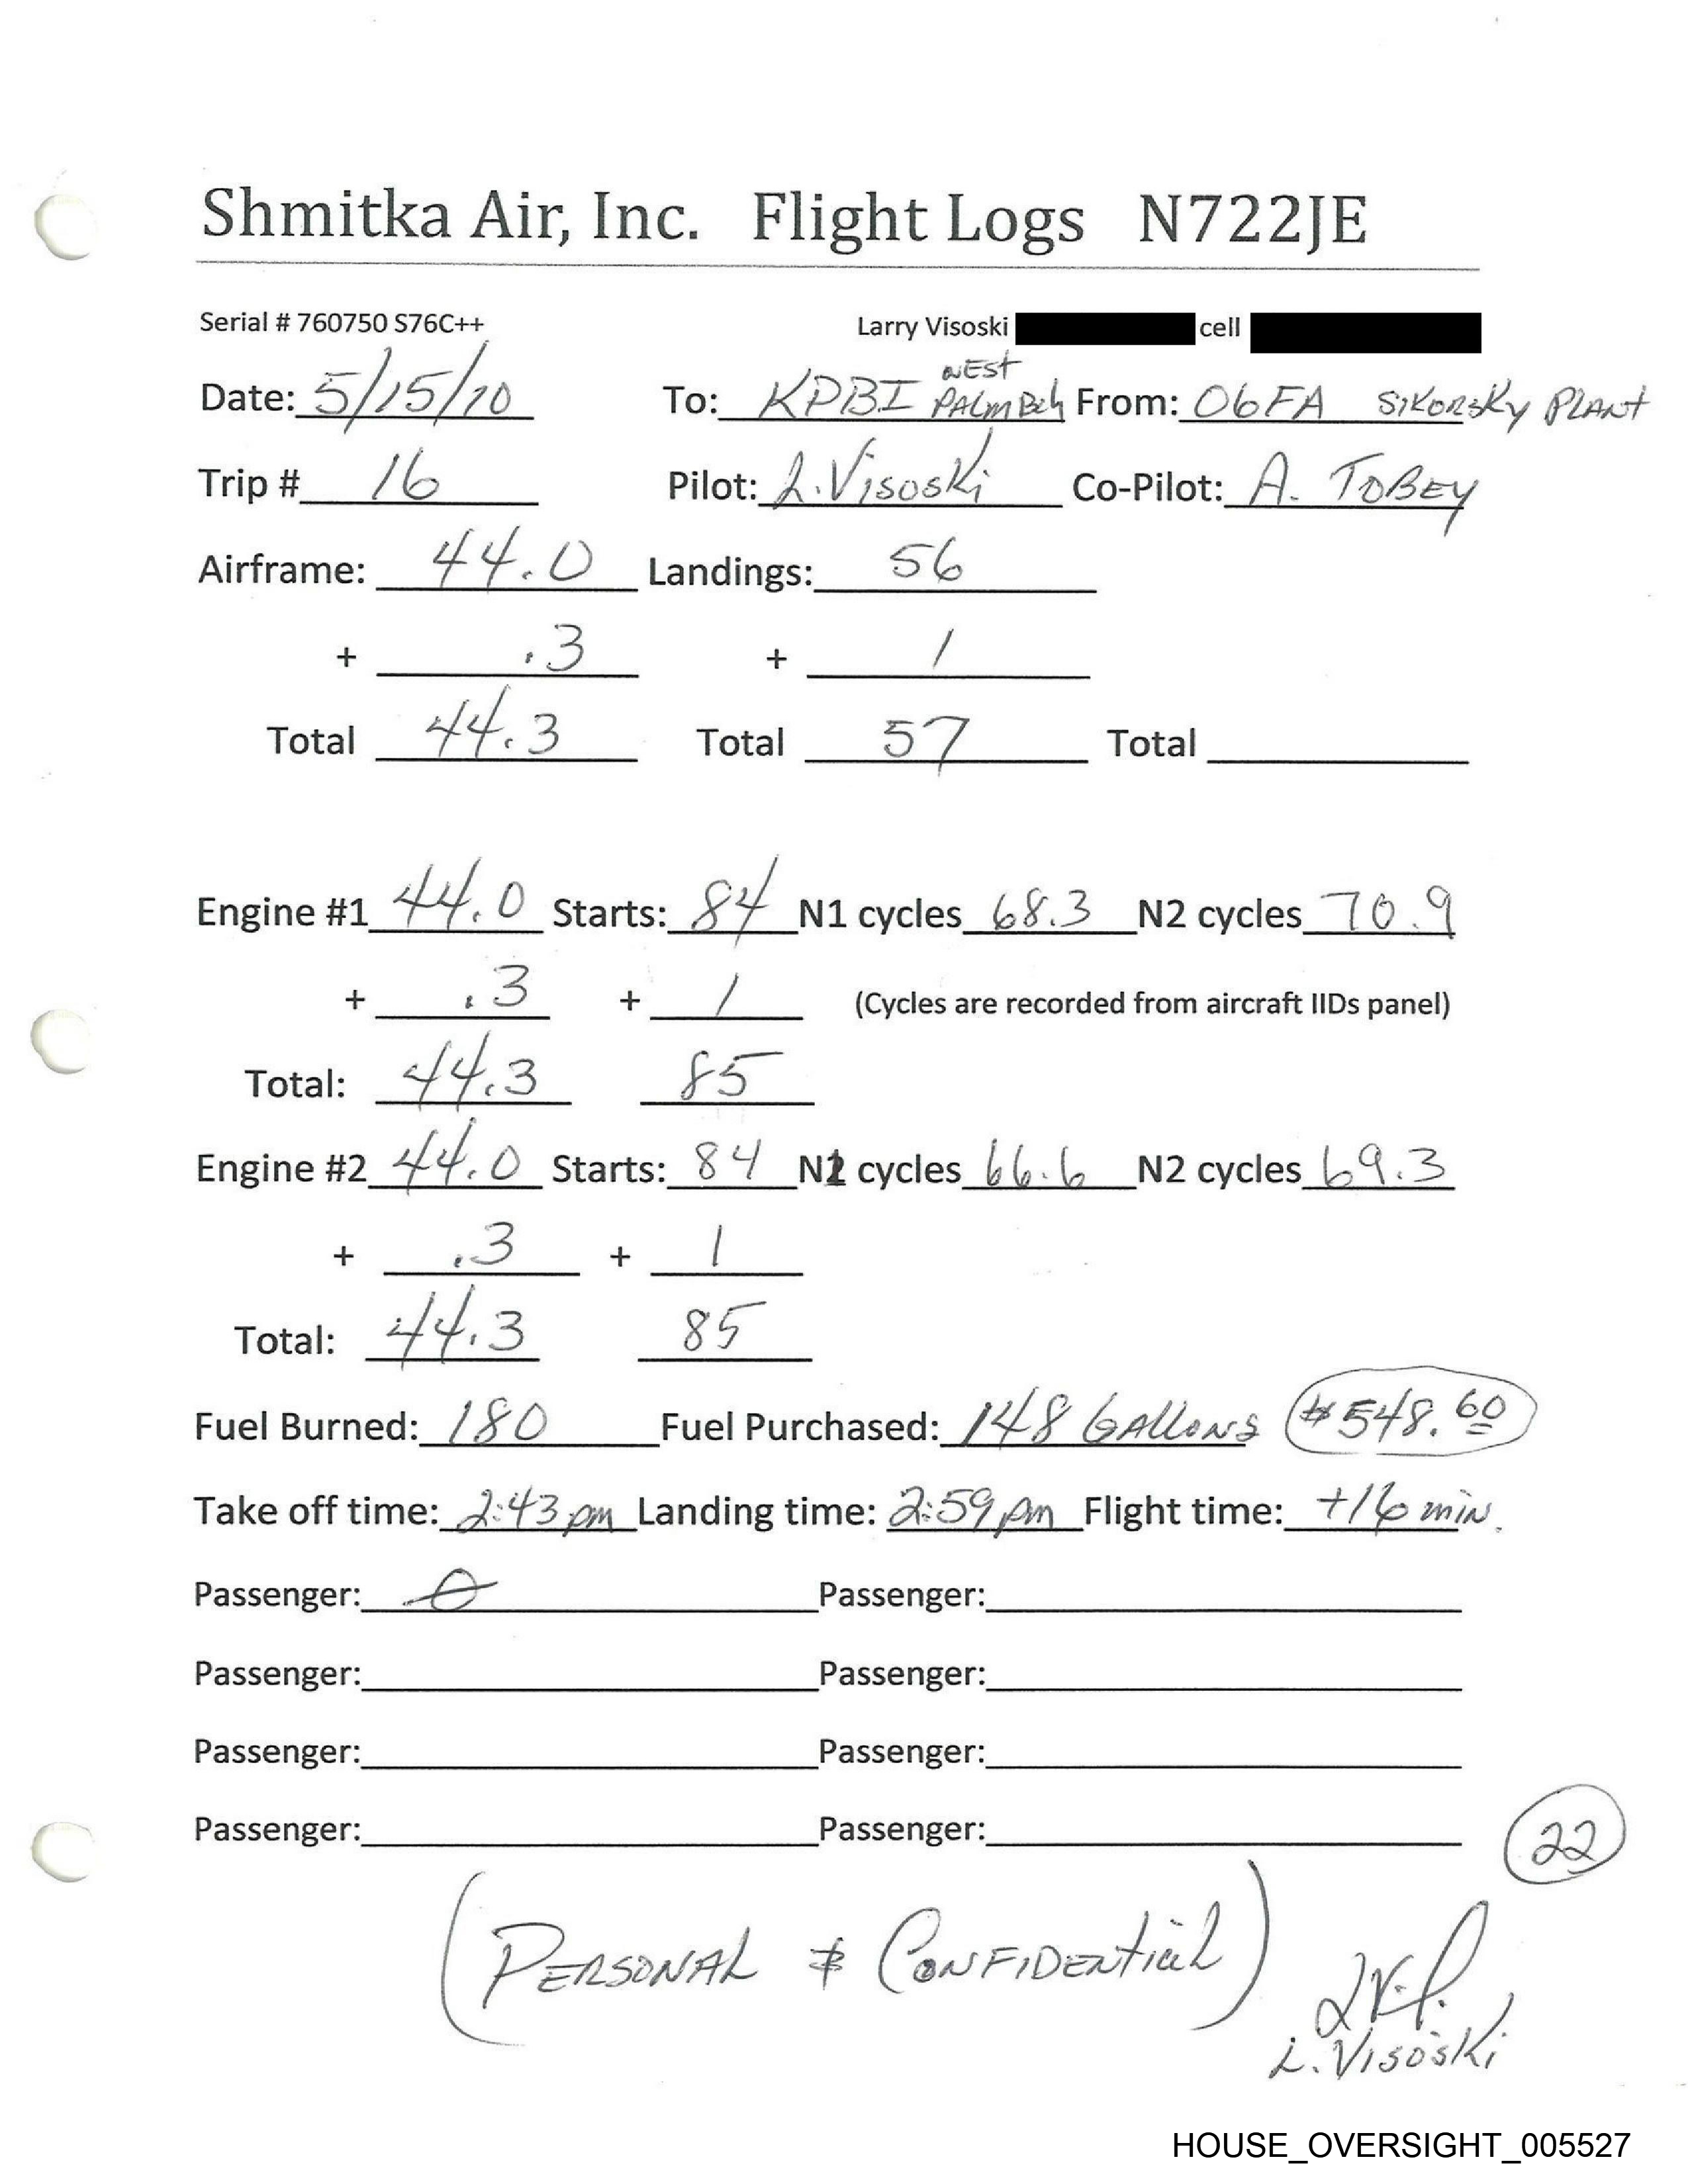 Shmitka Air, Inc. Flight Logs N722JE
Serial # 760750 S76C++ Larry Visoski cell
Date: 5/15/10 To: KPBI WEST PALM Bch From: 06FA SIKORSKY PLANT
Trip # 16 Pilot: L. Visoski Co-Pilot: A. TOBEY
Airframe: 44.0 Landings: 56
+ .3 + 1
Total 44.3 Total 57 Total
Engine #1 44.0 Starts: 84 N1 cycles 68.3 N2 cycles 70.9
+ .3 + 1 (Cycles are recorded from aircraft IIDs panel)
Total: 44.3 85
Engine #2 44.0 Starts: 84 N1 cycles 66.6 N2 cycles 69.3
+ .3 + 1
Total: 44.3 85
Fuel Burned: 180 Fuel Purchased: 148 GALLONS $548.60
Take off time: 2:43 pm Landing time: 2:59 pm Flight time: +16 min.
Passenger: 0 Passenger:
Passenger: Passenger:
Passenger: Passenger:
Passenger: Passenger:
22
(PERSONAL & CONFIDENTIAL)
L. Visoski
HOUSE_OVERSIGHT_005527